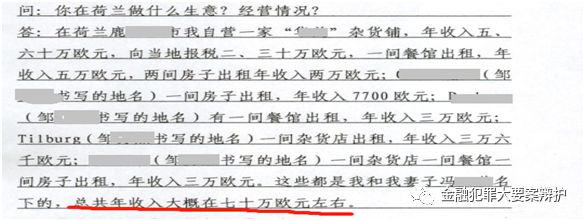 问：你在荷兰做什么生意？经营情况？
答：在荷兰鹿 市我自营一家“ ”杂货铺，年收入五、
六十万欧元，向当地报税二、三十万欧元，一间餐馆出租，年
收入五万欧元，两间房子出租年收入两万欧元； （邹
书写的地名）一间房子出租，年收入7700欧元；
（邹 书写的地名）有一间餐馆出租，年收入三万欧元；
Tilburg（邹 书写的地名）一间杂货店出租，年收入三万六
千欧元； （邹 书写的地名）一间杂货店一间餐馆一
间房子出租，年收入三万欧元。这些都是我和我妻子冯 名
下的，总共年收入大概在七十万欧元左右。
金融犯罪大要案辩护